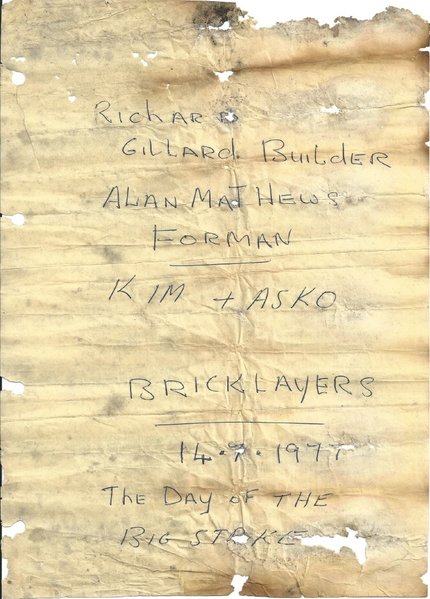 RicHARD
GILLARD. BUILDER
ALAN MATHEWS
FORMAN
KIM + ASKO
BRICKLAYERS
14.7.1977
The DAY OF THE
BIG STRIKE